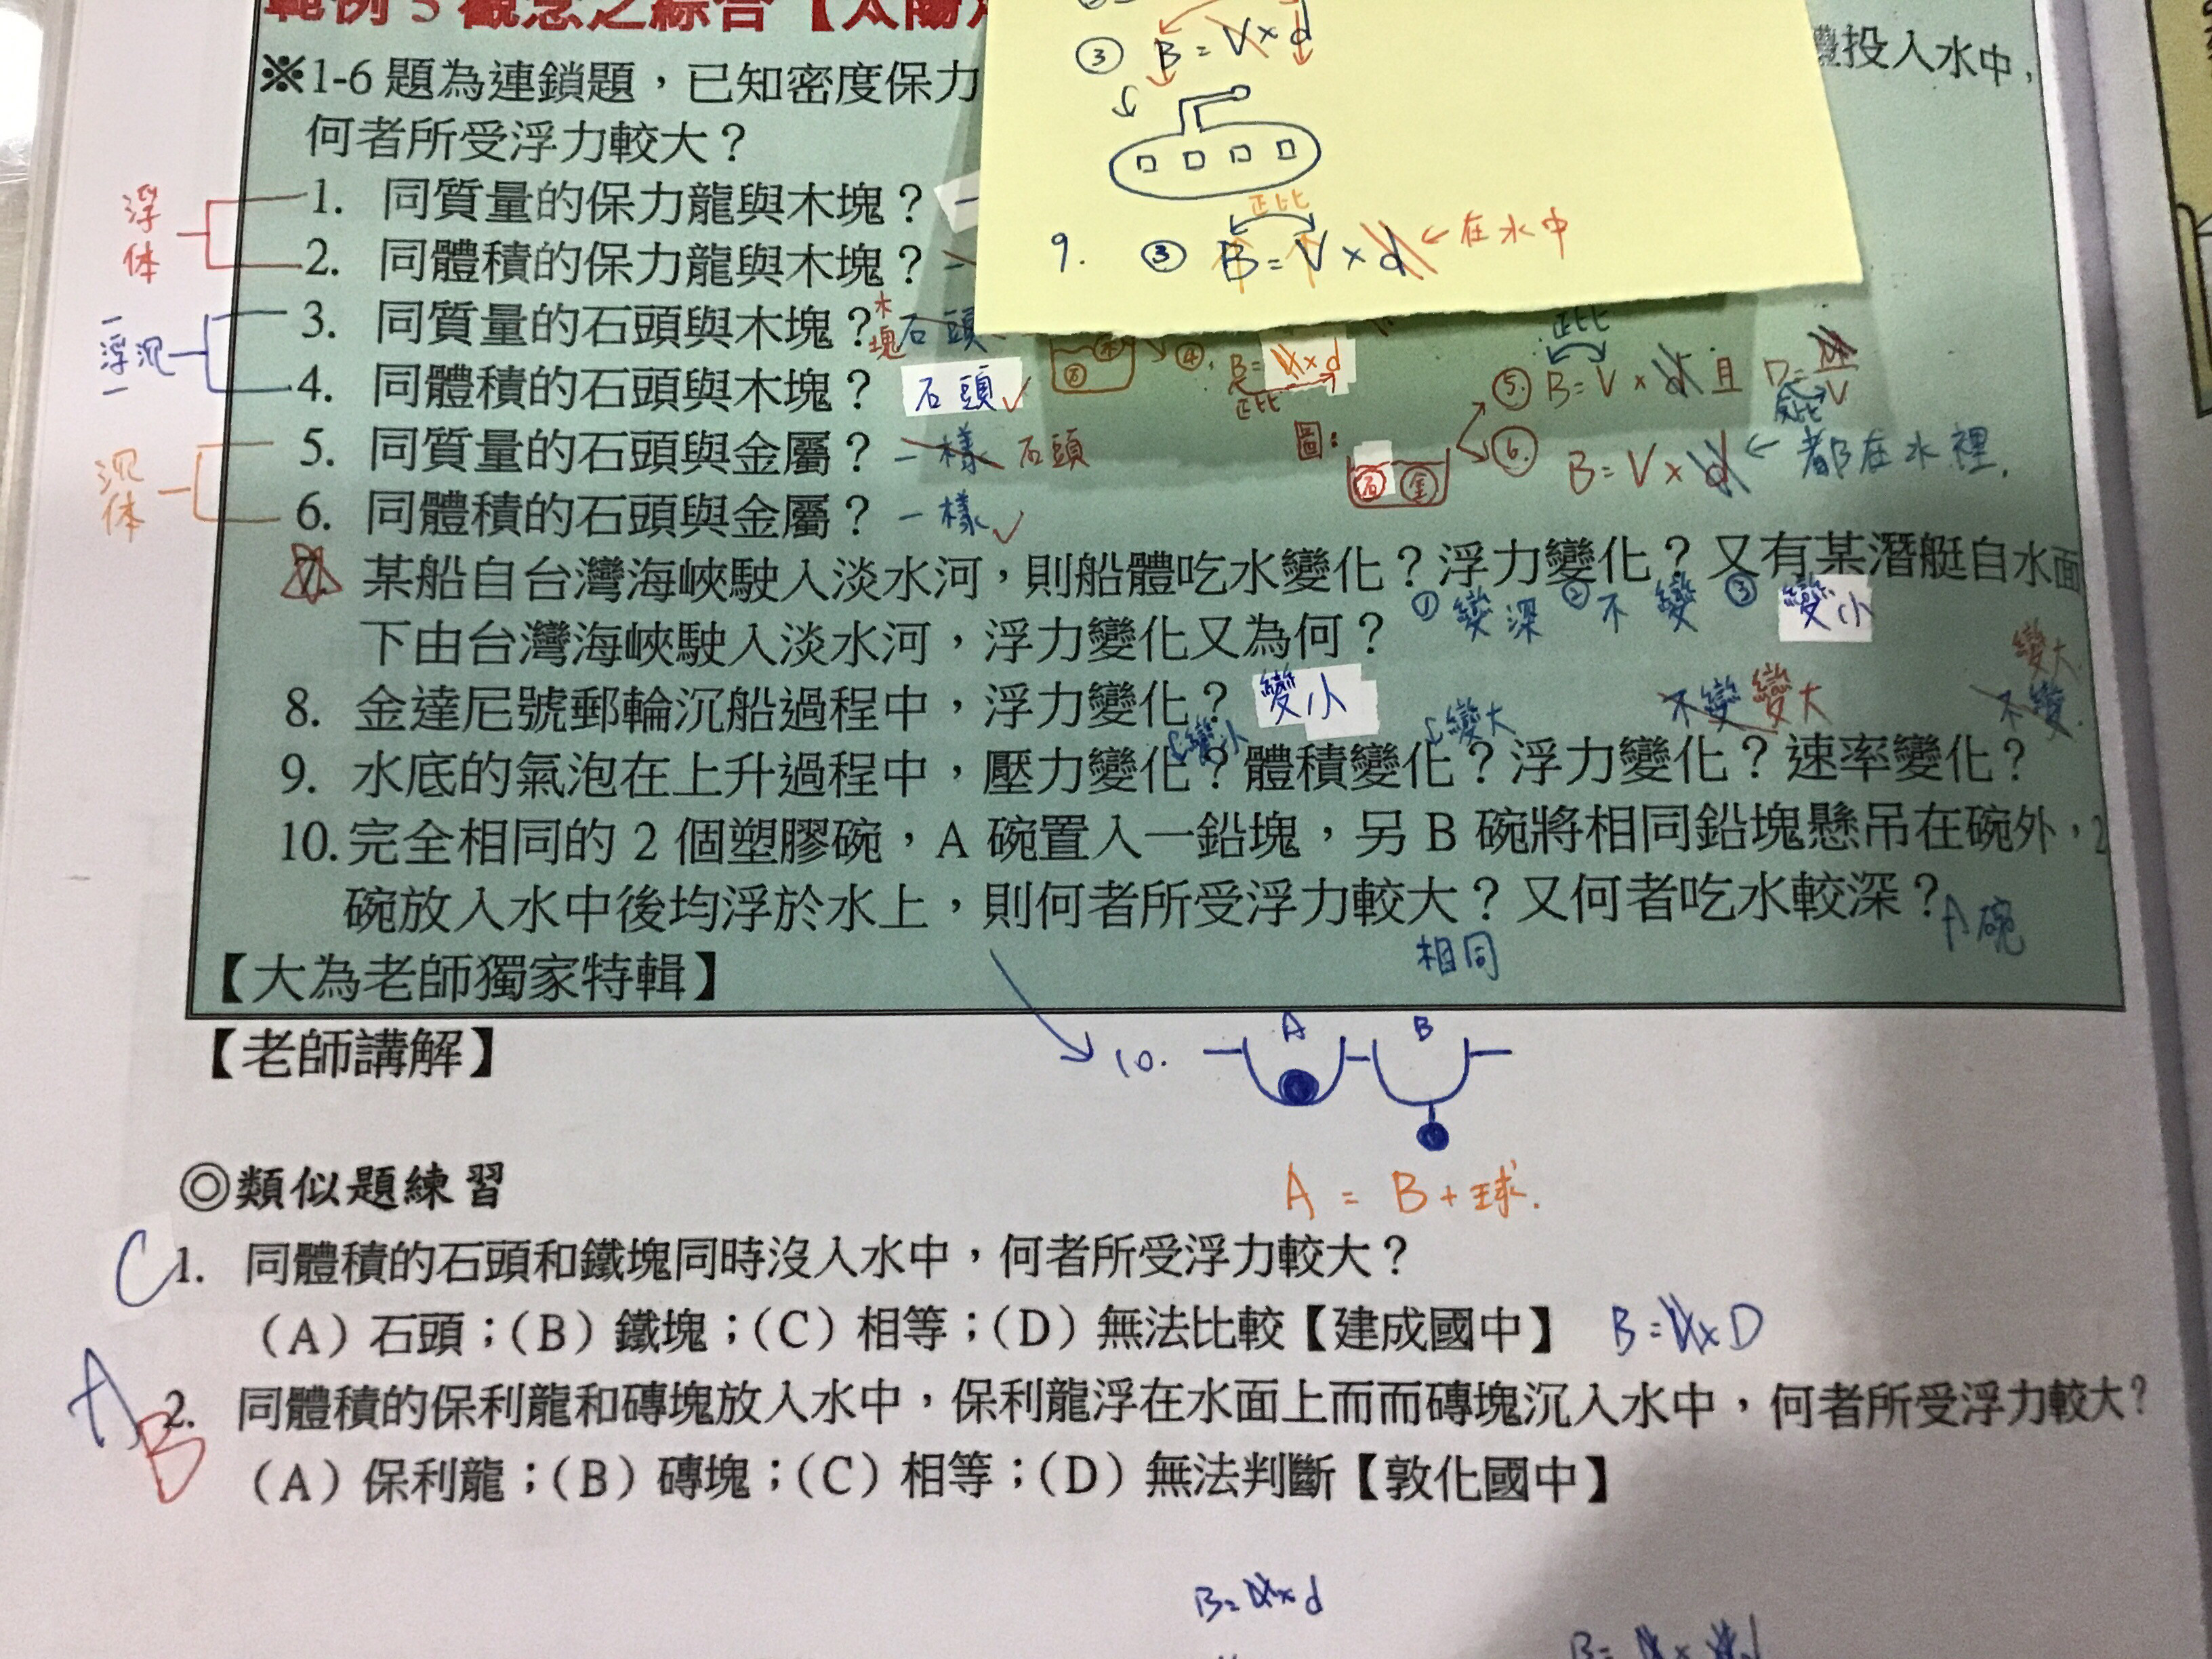 範例 5 觀念之綜合【太陽
③ B=V×d
※1-6 題為連鎖題，已知密度保力
投入水中，
何者所受浮力較大？
浮体
1. 同質量的保力龍與木塊？
正比
9. ③ B=V×d ←在水中
2. 同體積的保力龍與木塊？
浮沉
3. 同質量的石頭與木塊？石頭 木塊
4. 同體積的石頭與木塊？ 石頭✓
④. B=V×d
正比
正比
⑤. B=V×d 且 D=M/V
反比
沉体
5. 同質量的石頭與金屬？一樣 石頭
圖：
石 金
⑥. B=V×d ←都在水裡.
6. 同體積的石頭與金屬？一樣✓
7. 某船自台灣海峽駛入淡水河，則船體吃水變化？浮力變化？又有某潛艇自水面
①變深 ②不變 ③變小
下由台灣海峽駛入淡水河，浮力變化又為何？
8. 金達尼號郵輪沉船過程中，浮力變化？ 變小
變小 變大 不變 變大 不變. 變大.
9. 水底的氣泡在上升過程中，壓力變化？體積變化？浮力變化？速率變化？
10.完全相同的 2 個塑膠碗，A 碗置入一鉛塊，另 B 碗將相同鉛塊懸吊在碗外，2
碗放入水中後均浮於水上，則何者所受浮力較大？又何者吃水較深？
相同 A碗
【大為老師獨家特輯】
【老師講解】
10. A B
A = B+球.
◎類似題練習
C 1. 同體積的石頭和鐵塊同時沒入水中，何者所受浮力較大？
（A）石頭；（B）鐵塊；（C）相等；（D）無法比較【建成國中】 B=V×D
A B 2. 同體積的保利龍和磚塊放入水中，保利龍浮在水面上而而磚塊沉入水中，何者所受浮力較大？
（A）保利龍；（B）磚塊；（C）相等；（D）無法判斷【敦化國中】
B=V×d
B=V×d